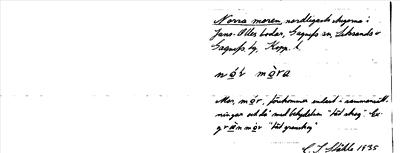 Norra moren, nordligaste skogarna i
Jans-Olles bodar, Sagmyr sn, Leksands o
Sagmyrs by, Kopp. l.
nór mòra
Mor, mór, förekommer endast i sammansätt-
ningar och då med betydelsen "tät skog". Ex.
grànmór "tät granskog"
C. I. Ståhle 1935